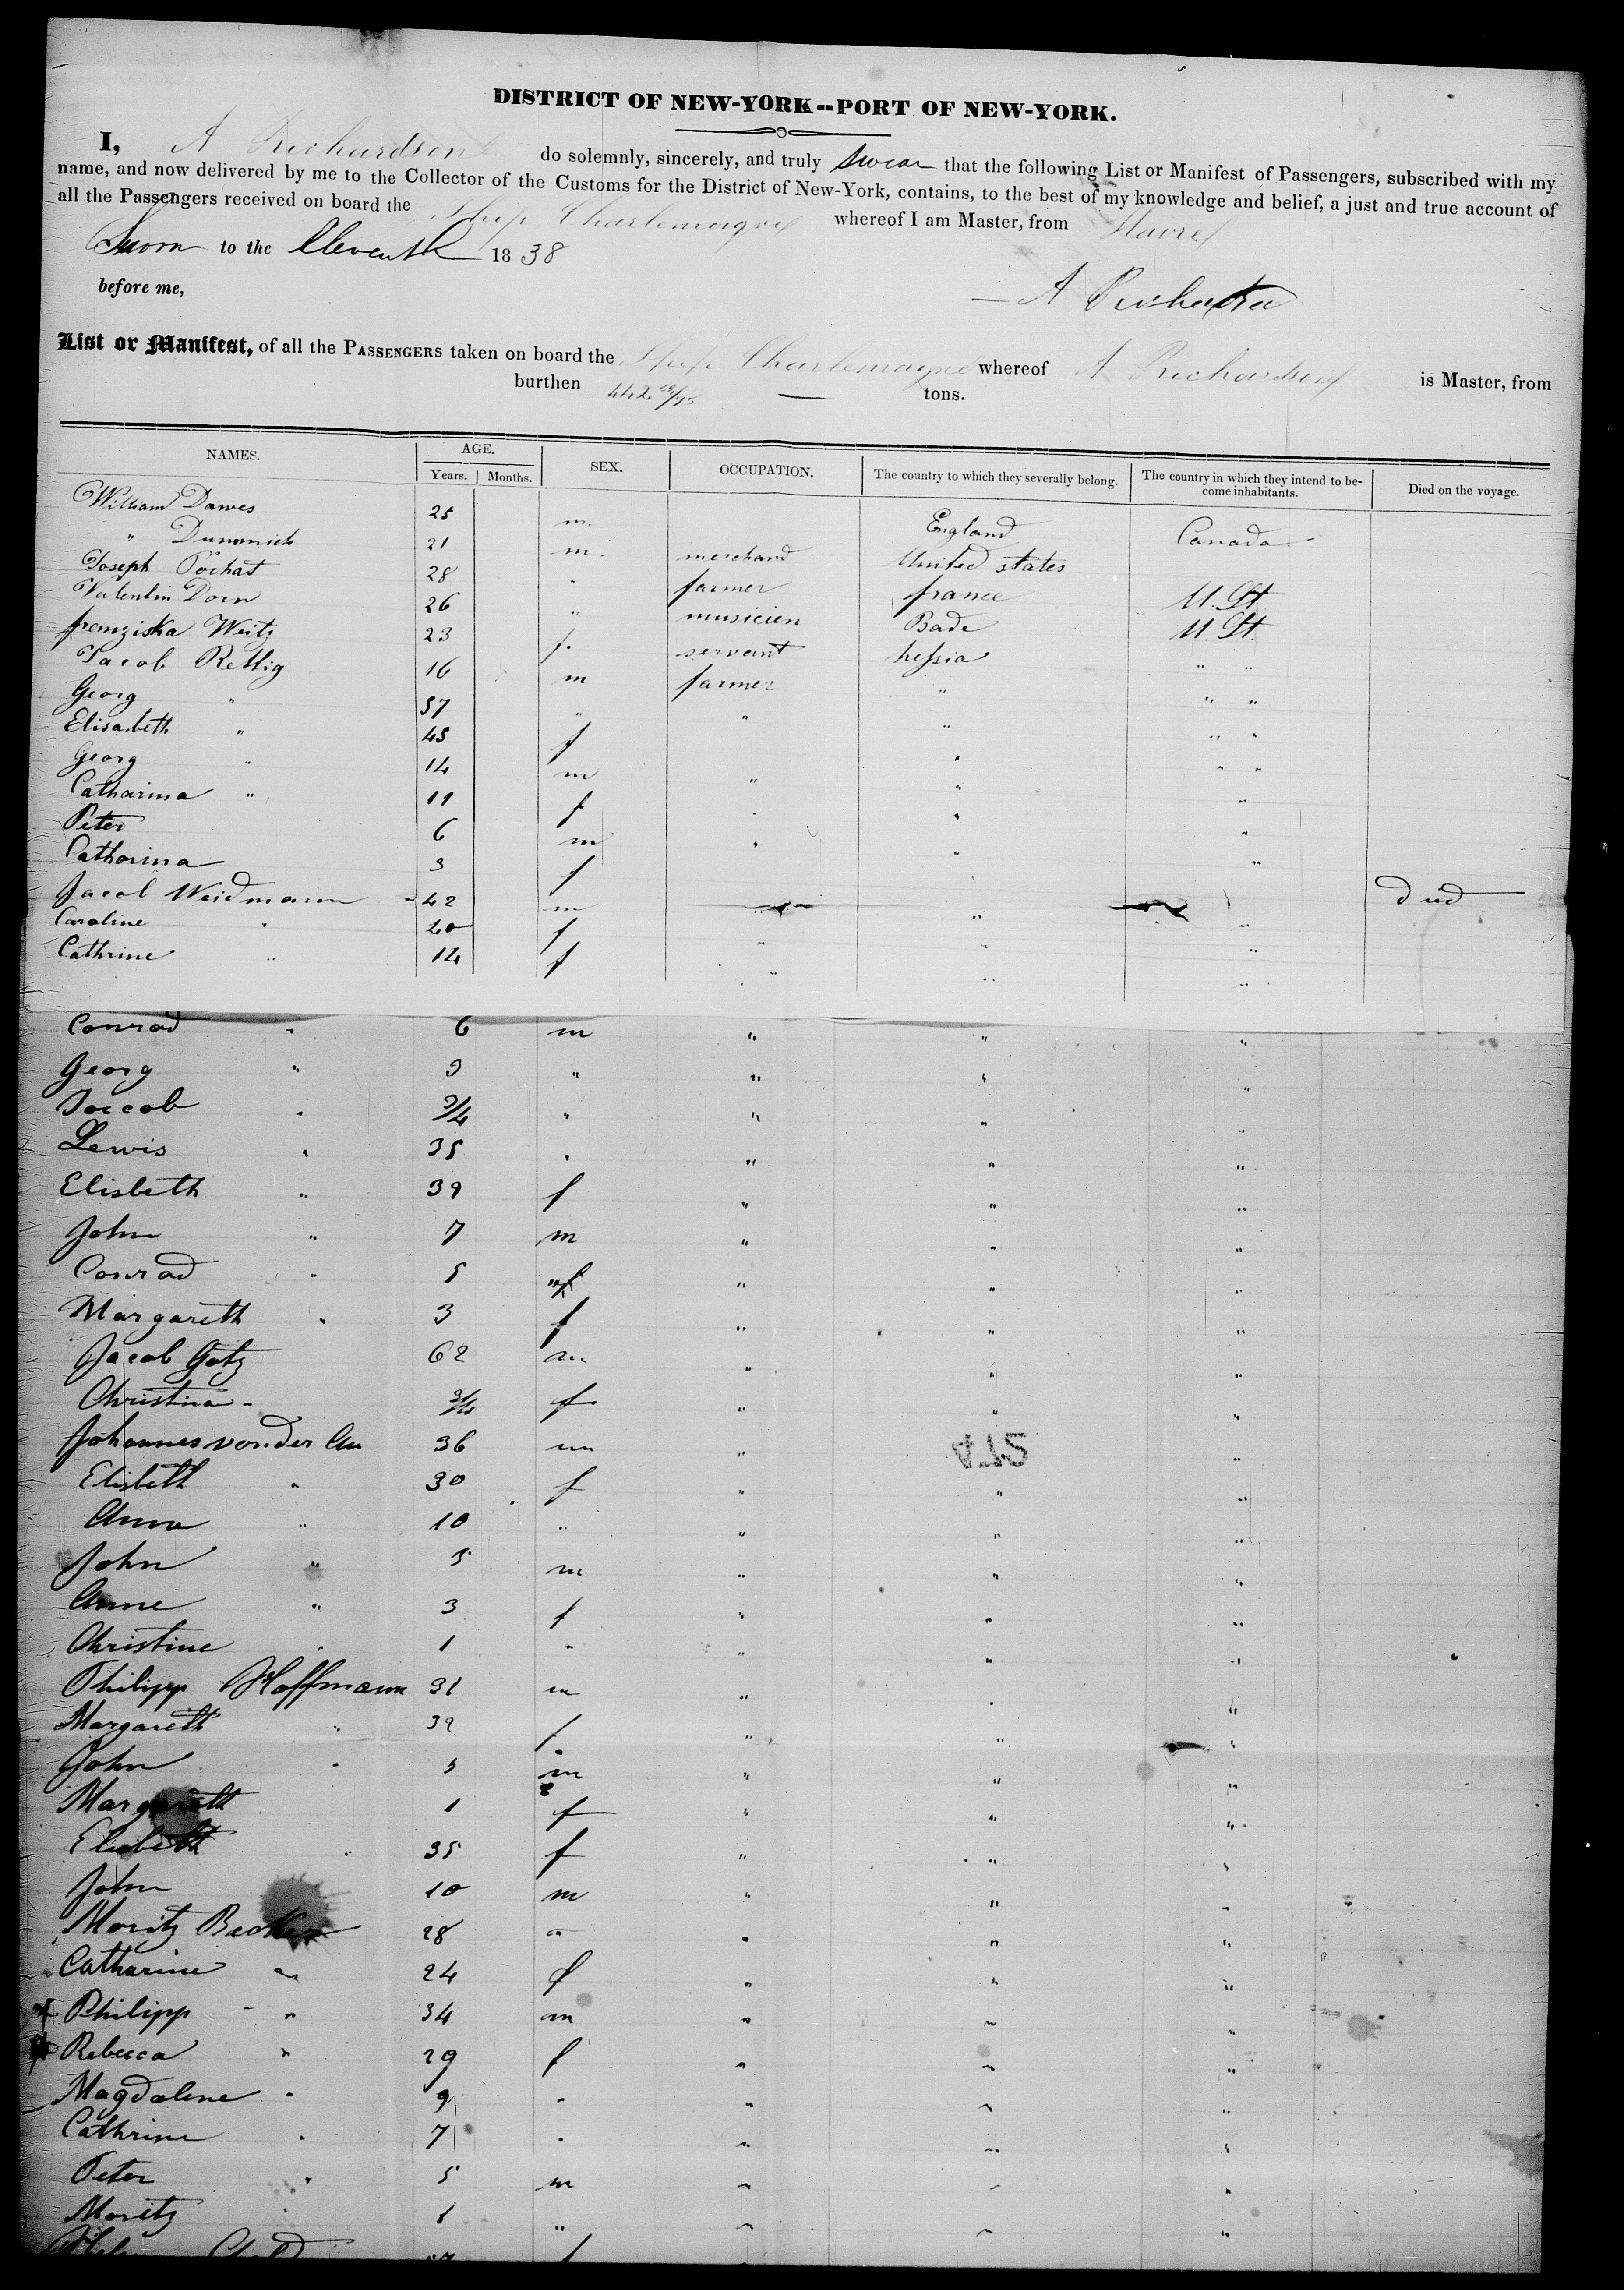 DISTRICT OF NEW-YORK--PORT OF NEW-YORK.
I, A Richardson do solemnly, sincerely, and truly swear that the following List or Manifest of Passengers, subscribed with my
name, and now delivered by me to the Collector of the Customs for the District of New-York, contains, to the best of my knowledge and belief, a just and true account of
all the Passengers received on board the Ship Charlemagne whereof I am Master, from Havre
Sworn to the Eleventh 1838
before me,
A Richardson
List or Manifest, of all the PASSENGERS taken on board the Ship Charlemagne whereof A Richardson is Master, from
burthen 442 tons.
NAMES. AGE. Years. Months. SEX. OCCUPATION. The country to which they severally belong. The country in which they intend to become inhabitants. Died on the voyage.
William Dawes 25 m. England Canada
" 21 m. merchand United states
Joseph Pochat 28 " farmer france U. St.
Valentin Dorn 26 " musicien Bade U. St.
franziska Weitz 23 f. servant hessia " "
Jacob Rettig 16 m farmer " " "
Georg " 57 " " " " "
Elisabeth " 45 f " " "
Georg " 14 m " " "
Catharina " 11 f " " "
Peter 6 m " " "
Catharina 3 f " "
Jacob Weidmann 42 m " " died
Caroline " 40 f " " "
Cathrine " 14 f " " "
Conrad " 6 m " " "
Georg " 9 " " " "
Jaccob " 3/4 " " " "
Lewis " 35 " " " "
Elisbeth " 39 f " " "
John " 7 m " " "
Conrad " 5 " " " "
Margareth " 3 f " " "
Jacob Gotz 62 m " " "
Christina - 3/4 f " " "
Johannes vonder Au 36 m " "
STA
Elisbeth " 30 f " " "
Anna " 10 " " " "
John " 5 m " " "
Anne " 3 f " " "
Christine " 1 " " " "
Philipp Hoffmann 31 m " " "
Margareth " 32 f " " "
John " 5 m " " "
Margareth 1 f " " "
Elisbeth " 35 f " " "
John 10 m " " "
Moritz Becker 28 " " " "
Catharine " 24 f " " "
Philipp " 34 m " " "
Rebecca " 29 f " " "
Magdalene " 9 " " " "
Cathrine " 7 " " " "
Peter " 5 m " " "
Moritz " 1 " " " "